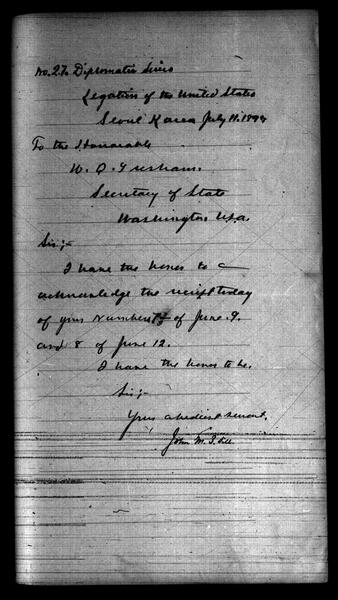 No. 27. Diplomatic Series
Legation of the United States
Seoul Korea July 11. 1894
To the Honorable
W. Q. Gresham.
Secretary of State
Washington, U.S.A.
Sir;-
I have the honor to
acknowledge the receipt today
of your Numbers 7 of June. 9.
and 8 of June 12.
I have the honor to be.
Sir;-
Your obedient servant.
John M. B. Sill.